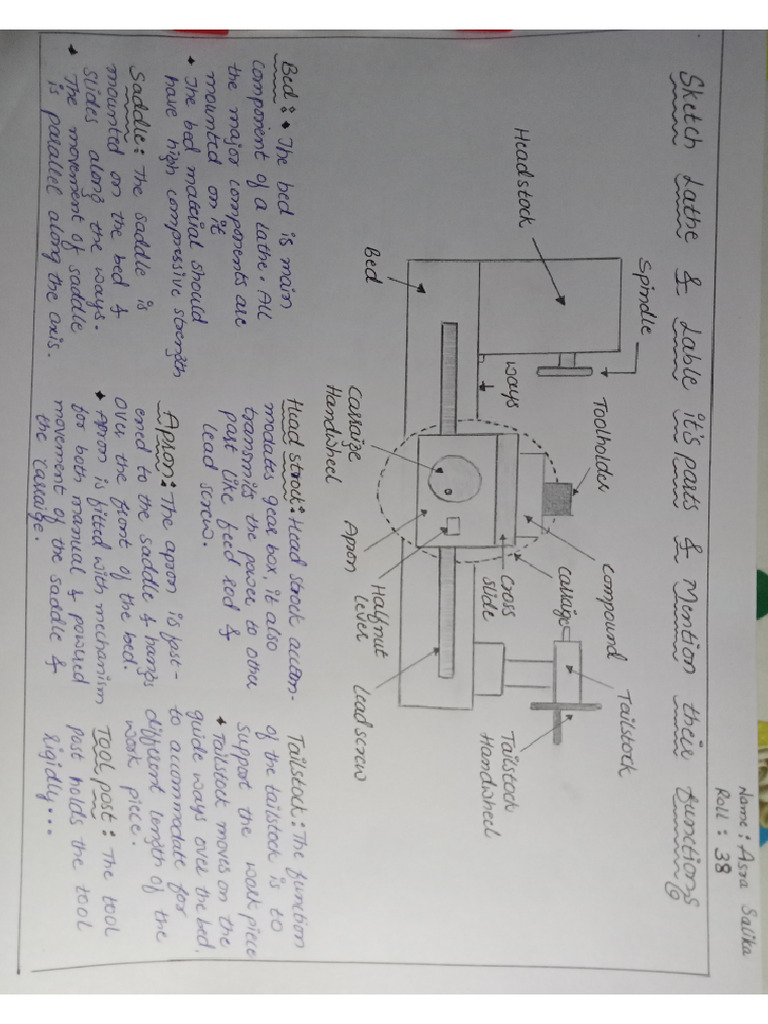 Name: Asra Salika
Roll: 38
Sketch Lathe & Lable it's parts & Mention their functions
Spindle
Headstock
Toolholder
compound
Tailstock
ways
carraige
cross
slide
Tailstock
Handwheel
Bed
Carraige
Handwheel
Apron
Halfnut
lever
Lead screw
Bed: • The bed is main
component of a lathe. All
the major components are
mounted on it
• The bed material should
have high compressive strength
Saddle: The saddle is
mounted on the bed &
slides along the ways.
• The movement of saddle
is parallel along the axis.
Head strock: Head strock accom-
modates gear box, it also
transmits the power to other
part like feed rod &
lead screw.
Apron: The apron is fast-
ened to the saddle & hangs
over the front of the bed.
• Apron is fitted with mechanism
for both manual & powered
movement of the saddle &
the carraige.
Tailstock: The function
of the tailstock is to
support the work piece
• Tailstock moves on the
guide ways over the bed,
to accommodate for
different length of the
work piece.
Tool post: The tool
post holds the tool
rigidly...